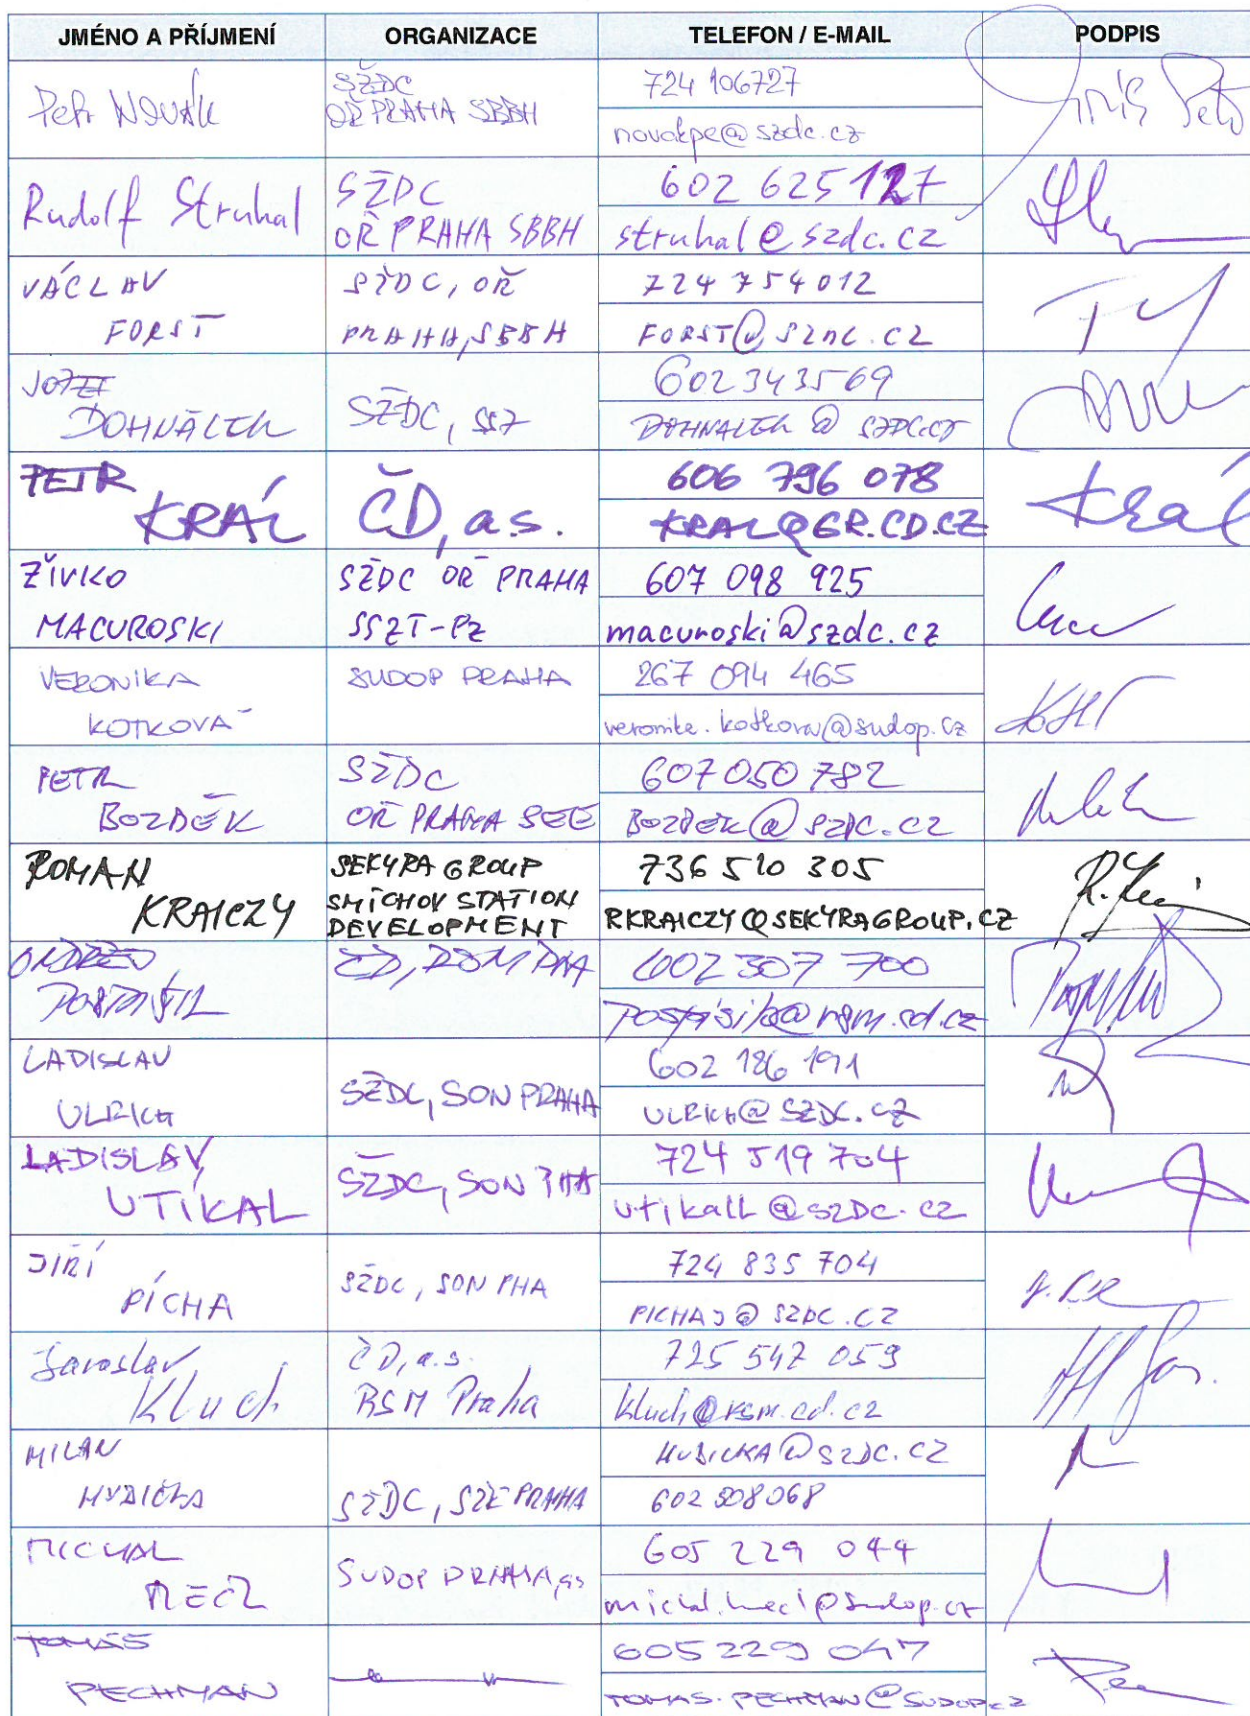 JMÉNO A PŘÍJMENÍ ORGANIZACE TELEFON / E-MAIL PODPIS
Petr Novák SŽDC OŘ PRAHA SBBH 724 106727
novakpe@szdc.cz
Rudolf Struhal SŽDC OŘ PRAHA SBBH 602 625 127
struhal@szdc.cz
VÁCLAV FORST SŽDC, OŘ PRAHA, SBBH 724 754 012
FORST@SZDC.CZ
DOHNÁLEK SŽDC, SSZ 602 343 569
DOHNALEK@SZDC.CZ
PETR KRÁL ČD, a.s. 606 796 078 Král
KRAL@GR.CD.CZ
ŽIVKO MACUROSKI SŽDC OŘ PRAHA SSZT-PZ 607 098 925
macuroski@szdc.cz
VERONIKA KOTKOVÁ SUDOP PRAHA 267 094 465
veronika.kotkova@sudop.cz
PETR BOZDĚK SŽDC OŘ PRAHA SEE 607 050 782
BOZDEK@SZDC.CZ
ROMAN KRAICZY SEKYRA GROUP SMÍCHOV STATION DEVELOPMENT 736 510 305
RKRAICZY@SEKYRAGROUP.CZ
ONDŘEJ POSPÍŠIL ČD, RSM PHA 602 307 700
pospisilo@rsm.cd.cz
LADISLAV ULRICH SŽDC, SON PRAHA 602 186 191
ULRICH@SZDC.CZ
LADISLAV UTÍKAL SŽDC, SON PHA 724 519 704
utikalL@SZDC.CZ
JIŘÍ PÍCHA SŽDC, SON PHA 724 835 704
PICHAJ@SZDC.CZ
Jaroslav Kluch ČD, a.s. RSM Praha 725 547 059
kluch@rsm.cd.cz
MILAN HUBIČKA SŽDC, SŽE PRAHA HUBICKA@SZDC.CZ
602 508 068
MICHAL MECL SUDOP PRAHA, as 605 229 044
michal.mecl@sudop.cz
TOMÁŠ PECHMAN 605 229 047
TOMAS.PECHMAN@SUDOP.CZ